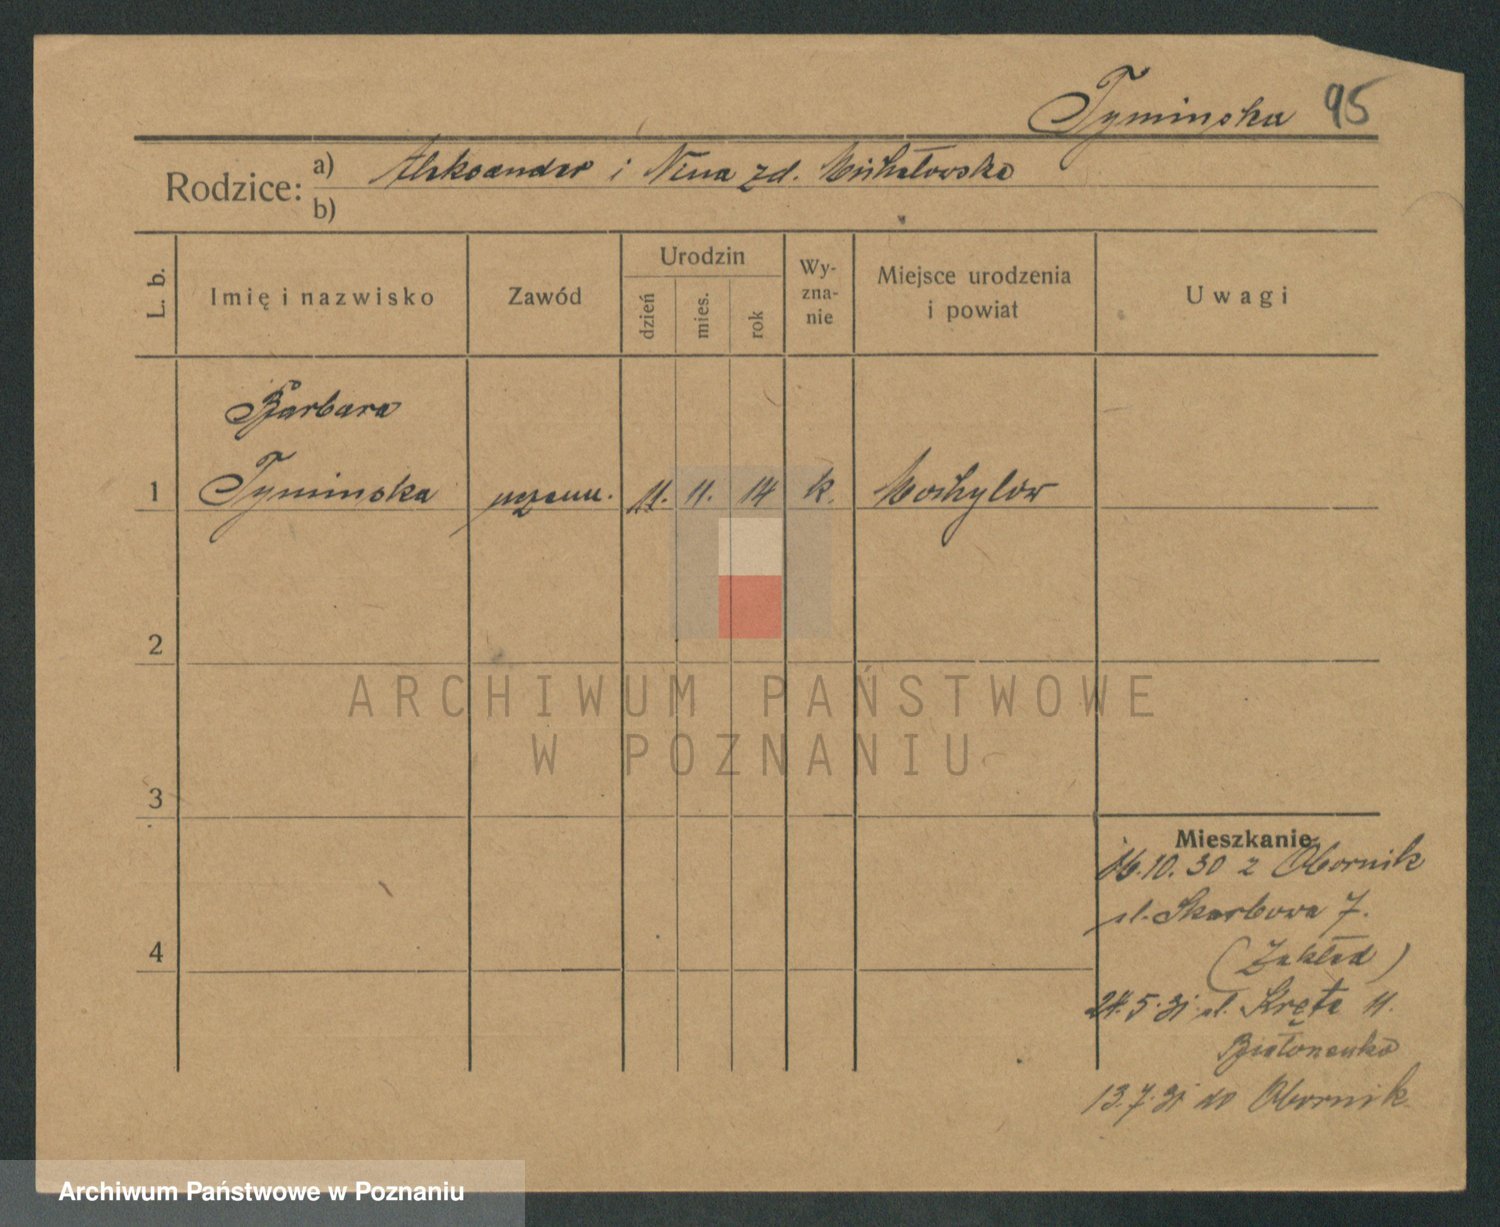 Tyminska 95
Rodzice: a) Aleksander i Nina zd. Michałowska
b)
L. b.
Imię i nazwisko
Zawód
Urodzin
dzień
mies.
rok
Wy-
zna-
nie
Miejsce urodzenia
i powiat
Uwagi
Barbara
1 Tyminska uczenn. 11. 11. 14 k. Mohylów
2
ARCHIWUM PAŃSTWOWE
W POZNANIU
3
4
Mieszkanie
16.10.30 z Obornik
ul. Skarbowa 7.
(Zakład)
24.5.31 ul. Kręta 11.
13.7.31 do Obornik
Archiwum Państwowe w Poznaniu